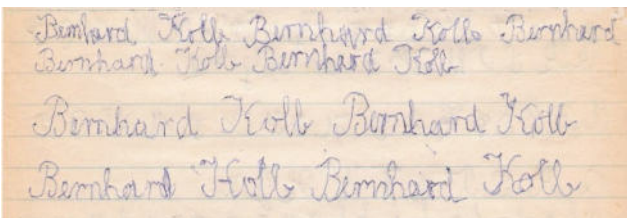 Bernhard Kolb Bernhard Kolb Bernhard
Bernhard Kolb Bernhard Kolb
Bernhard Kolb Bernhard Kolb
Bernhard Kolb Bernhard Kolb